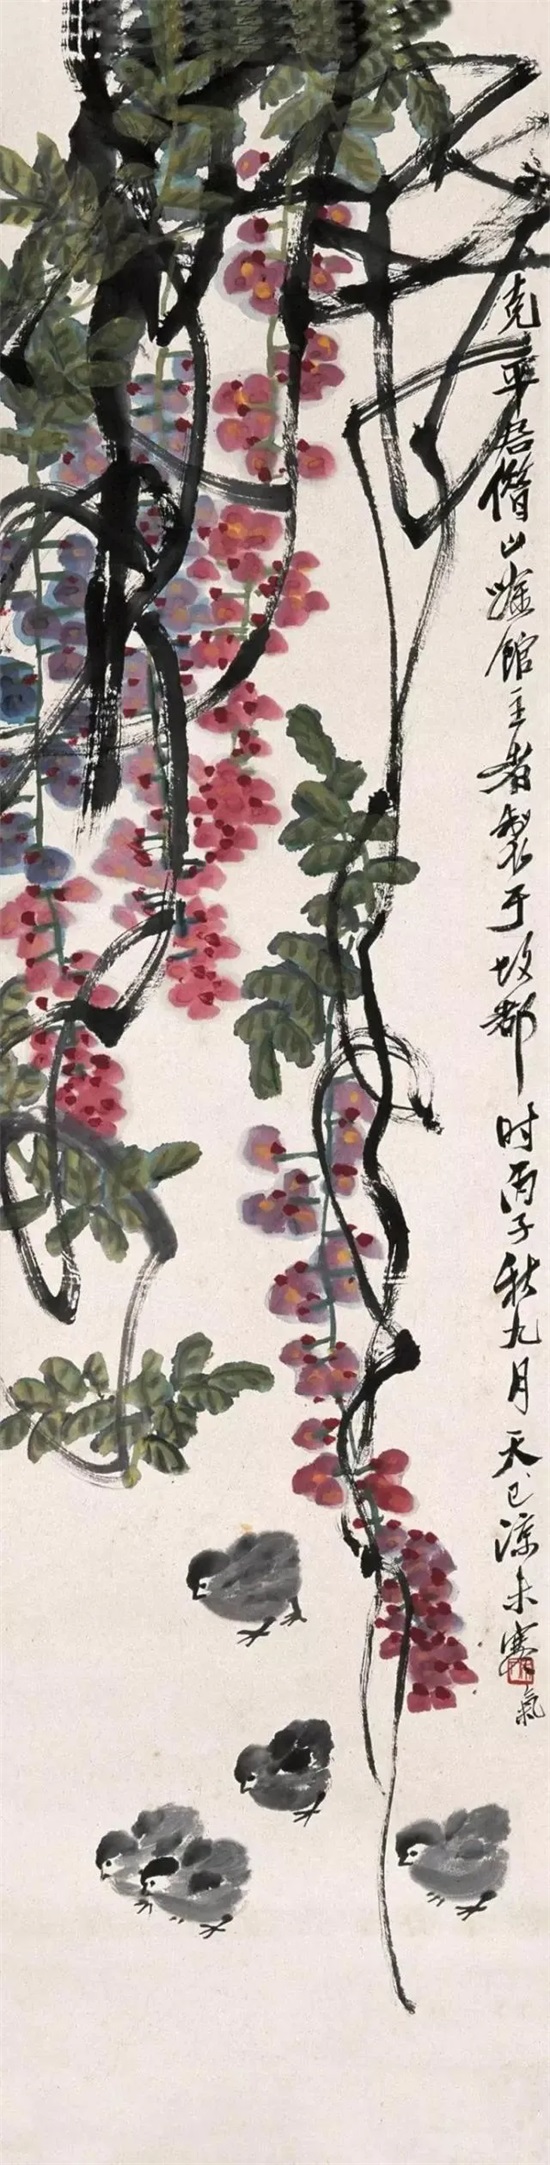 克平居借山唫館主者製于故都时丙子秋九月天已涼未寒氣